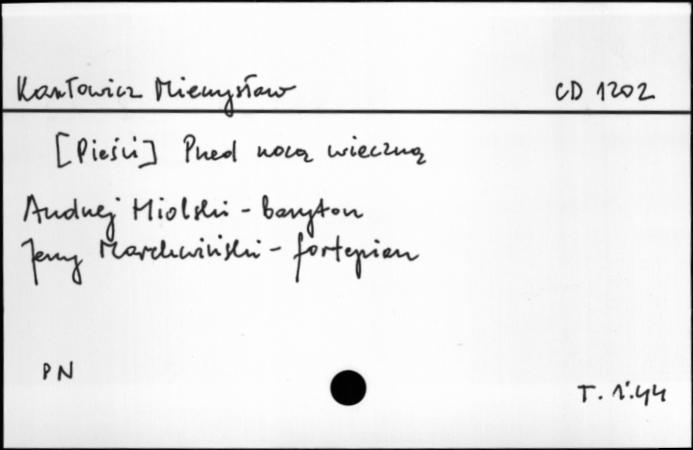 Karłowicz Mieczysław CD 1202
[Pieśni] Przed nocą wieczną
Andrzej Hiolski - baryton
Jerzy Marchwiński - fortepian
PN
T. 1'.44